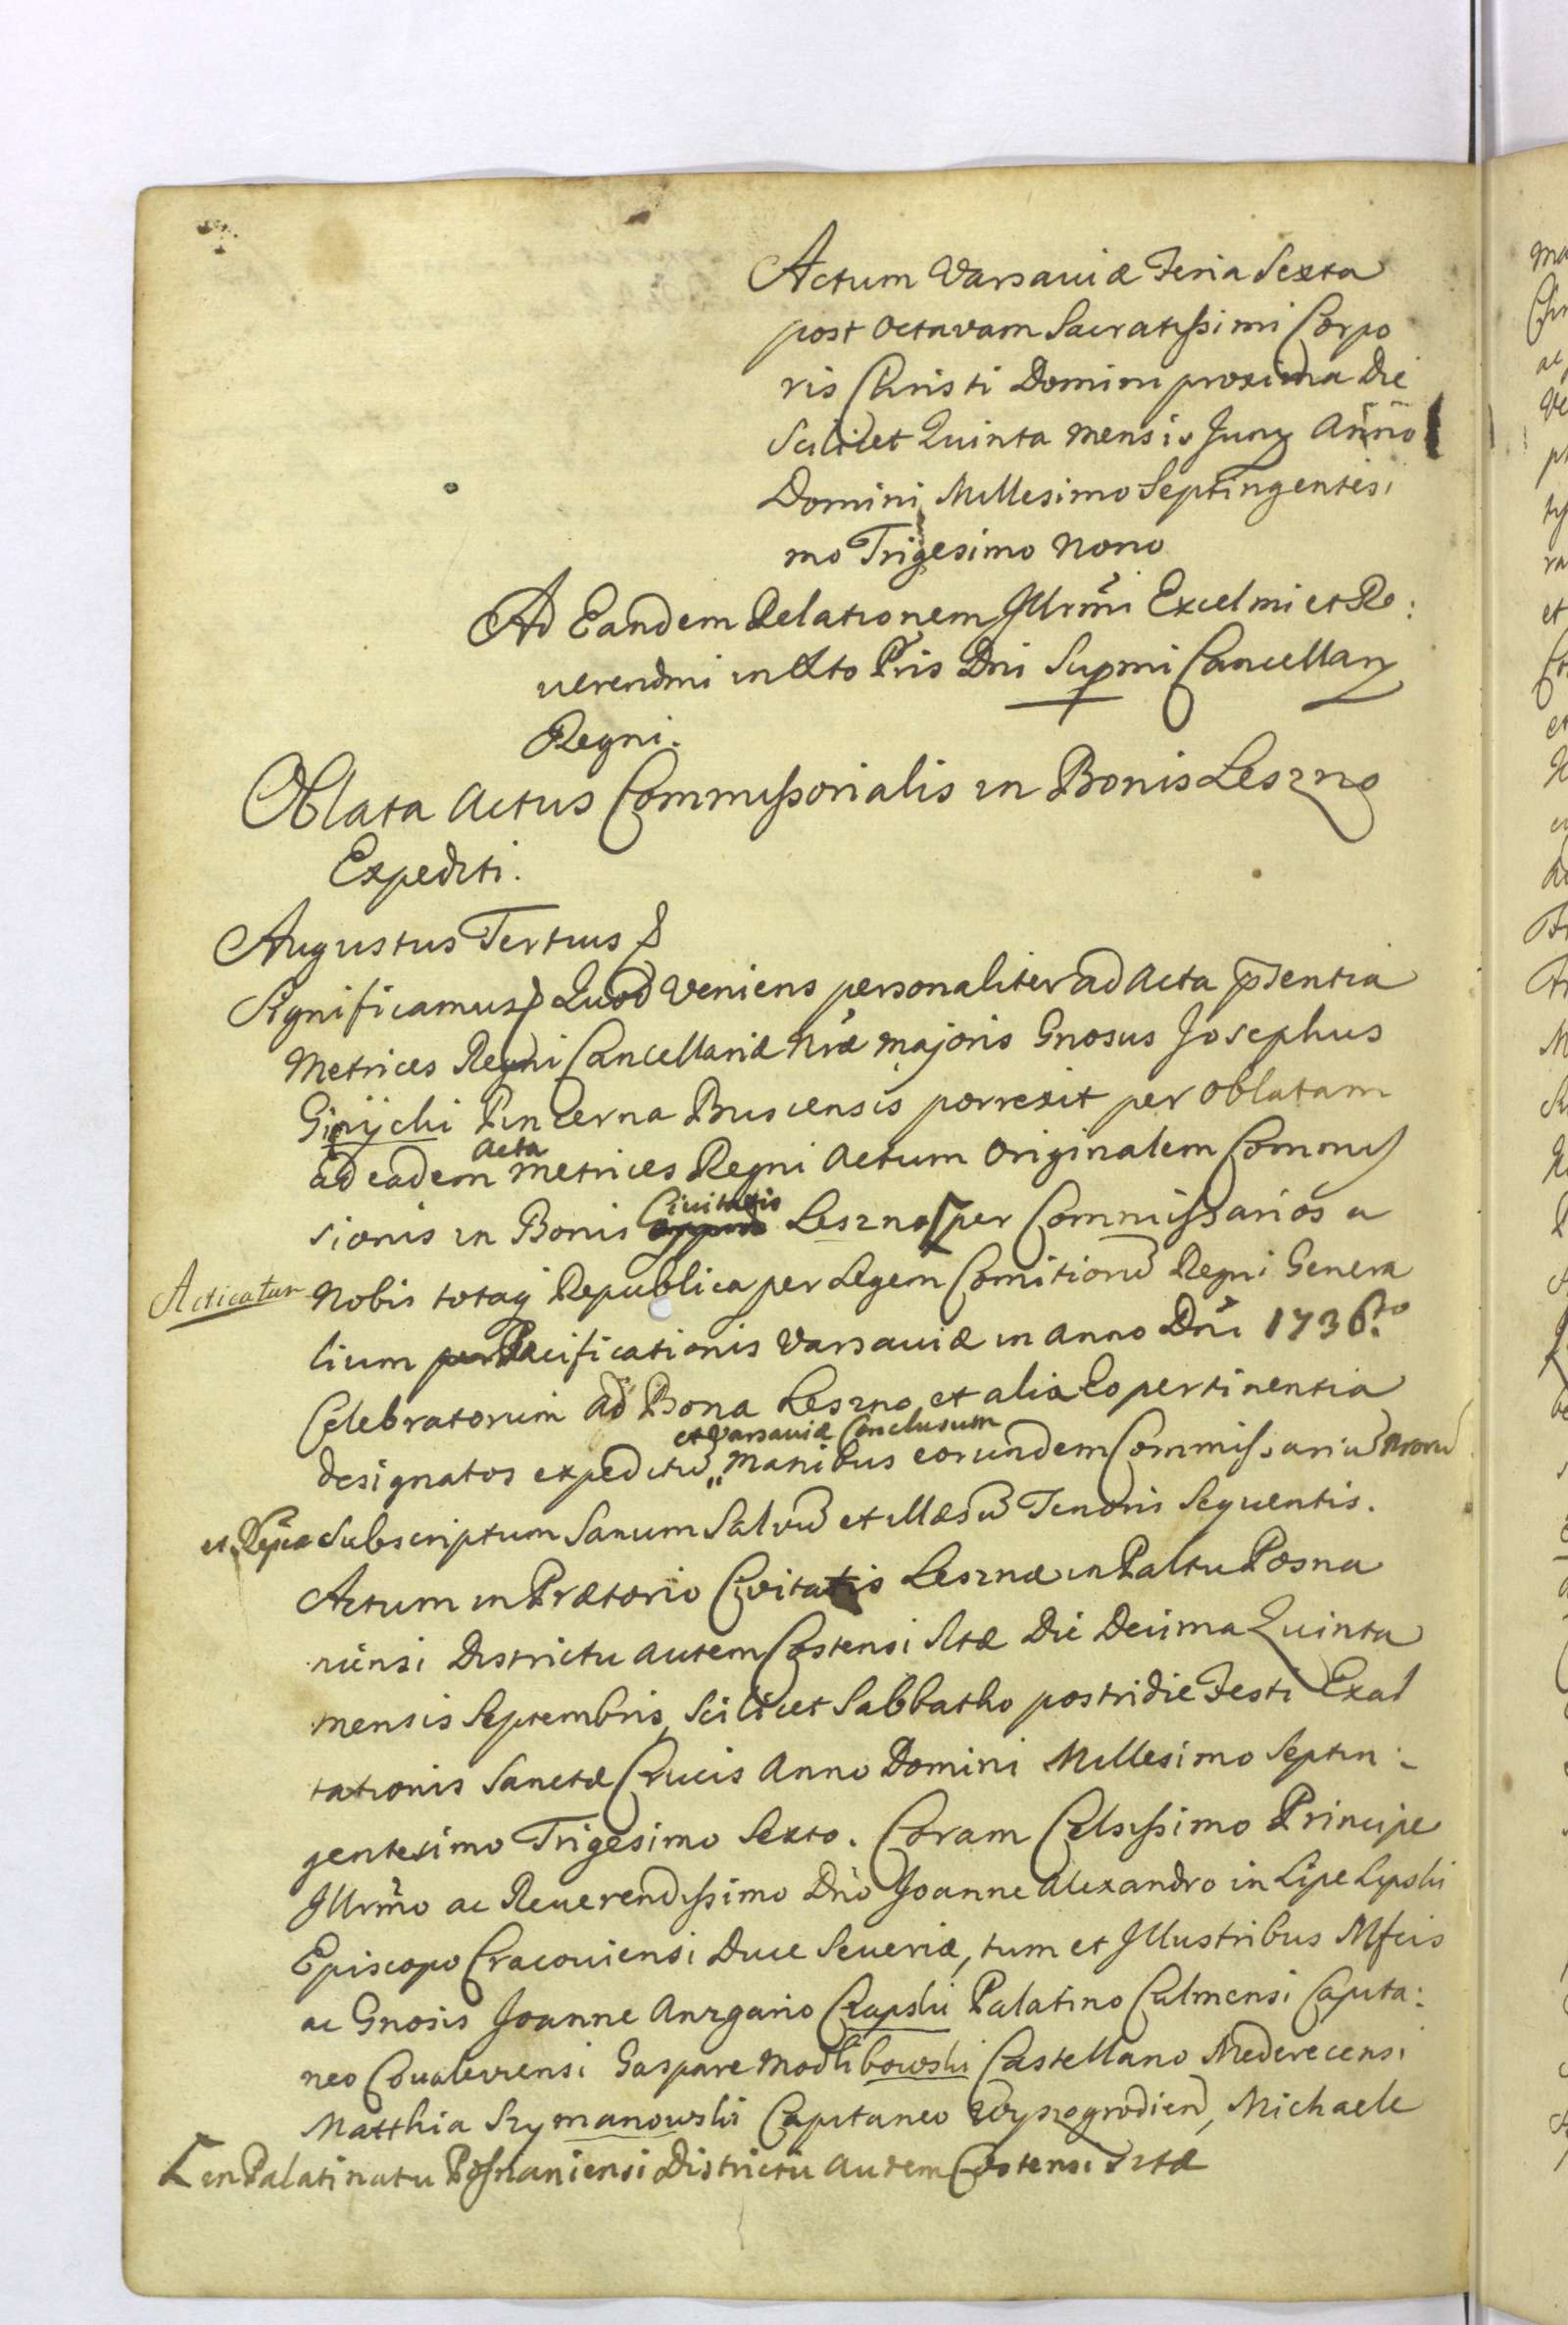 Actum Varsaviæ Feria Sexta
post Octavam Sacratissimi Corpo
ris Christi Domini proxima Die
Scilicet Quinta mensis Juny Anno
Domini Millesimo Septingentesi
mo Trigesimo Nono
Ad Eandem Relationem Illrmi Excelmi et Re:
verendmi in Xto Pris Dni Supmi Cancellary
Regni.
Oblata Actus Commissorialis in Bonis Leszno
Expediti.
Augustus Tertius
Significamus Quod Veniens personaliter ad Acta pntia
Metrices Regni Cancellariæ Nræ majoris Gnosus Josephus
Pincerna Buscensis porrexit per Oblatam
ad eadem Acta Metrices Regni Actum Originalem Commis
sionis in Bonis Civitatis Leszno per Commissarios a
Acticatur Nobis totaq Republica per Legem Comitioru Regni Genera
lium Pacificationis Varsaviæ in Anno Dni 1736to
Celebratorum ad Bona Leszno et alia Eo pertinentia
designatos expeditu et Varsaviæ Conclusum manibus eorundem Commissariu nroru
et Reipcæ Subscriptum Sanum Salvu et illæsu Tenoris Sequentis.
Actum in Prætorio Civitatis Lesznæ in Paltu Posna
niensi Districtu autem Costensi Sitæ Die Decima Quinta
mensis Septembris, Scilicet Sabbatho postridie Festi Exal
tationis Sanctæ Crucis Anno Domini Millesimo Septin:
gentesimo Trigesimo Sexto. Coram Celsissimo Principe
Illrmo ac Reverendissimo Dno Joanne Alexandro in Lipe Lipski
Episcopo Cracoviensi Duce Severiæ, tum et Illustribus Mfcis
ac Gnosis Joanne Anzgario Czapski Palatino Culmensi Capita:
neo Covaleviensi Gaspare Modlibowski Castellano Mederecensi
Matthia Szymanowski Capitaneo Wyszogrodien, Michaele
in Palatinatu Posnaniensi Districtu autem Costensi Sitæ